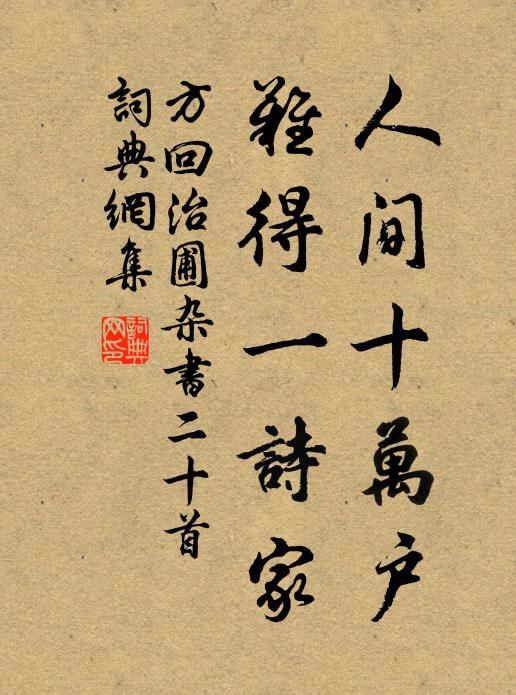 人間十萬戶
難得一詩家
方回治圃杂書二十首
詞典網集
詞典网印